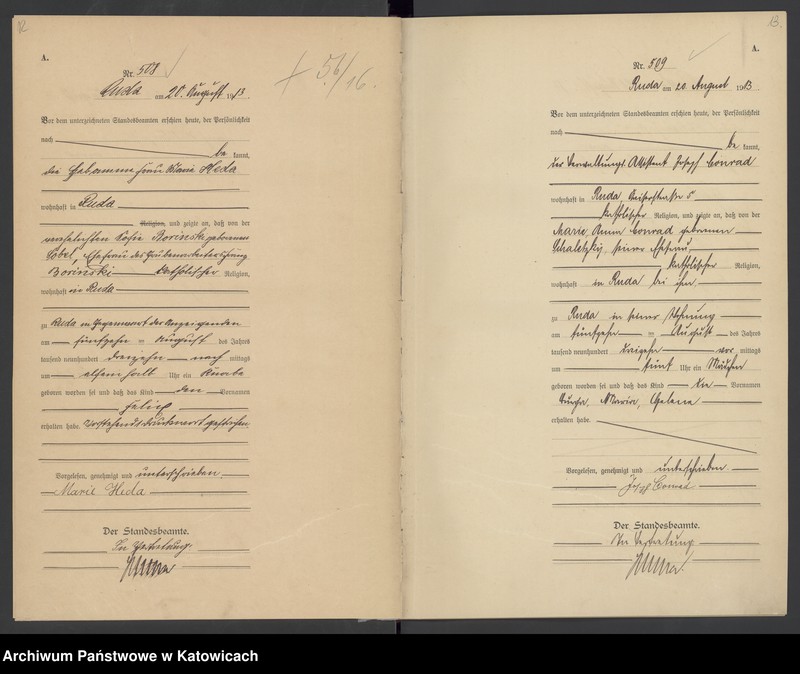 12
A.
Nr. 508
+ 56/16.
Ruda am 20. August 1913.
Vor dem unterzeichneten Standesbeamten erschien heute, der Persönlichkeit
nach
be kannt,
die Hebamme Frau Marie Heda
wohnhaft in Ruda
Religion, und zeigte an, daß von der
verehelichten Sofie Borinski geborenen
Sobel, Ehefrau des Grubenarbeiters
Borinski katholischer Religion,
wohnhaft in Ruda
zu Ruda in Gegenwart der Anzeigenden
am fünfzehn ten August des Jahres
tausend neunhundert dreizehn nach mittags
um elfeinhalb Uhr ein Knabe
geboren worden sei und daß das Kind den Vornamen
Felix
erhalten habe. Vorstehend 1 Druckwort gestrichen.
Vorgelesen, genehmigt und unterschrieben.
Marie Heda
Der Standesbeamte.
In Vertretung.
13.
A.
Nr. 509
Ruda am 20. August 1913
Vor dem unterzeichneten Standesbeamten erschien heute, der Persönlichkeit
nach
be kannt,
der Verwaltungs-Assistent Joseph Conrad
wohnhaft in Ruda, Kaiserstraße 5
katholischer Religion, und zeigte an, daß von der
Marie, Anna Conrad geborenen
Schaletzky, seiner Ehefrau,
katholischer Religion,
wohnhaft in Ruda bei ihm
zu Ruda in seiner Wohnung
am fünfzehn ten August des Jahres
tausend neunhundert dreizehn vor mittags
um fünf Uhr ein Mädchen
geboren worden sei und daß das Kind die Vornamen
Maria, Helene
erhalten habe.
Vorgelesen, genehmigt und unterschrieben
Joseph Conrad
Der Standesbeamte.
In Vertretung.
Archiwum Państwowe w Katowicach